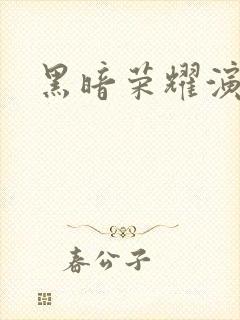 黑暗荣耀演
春公子